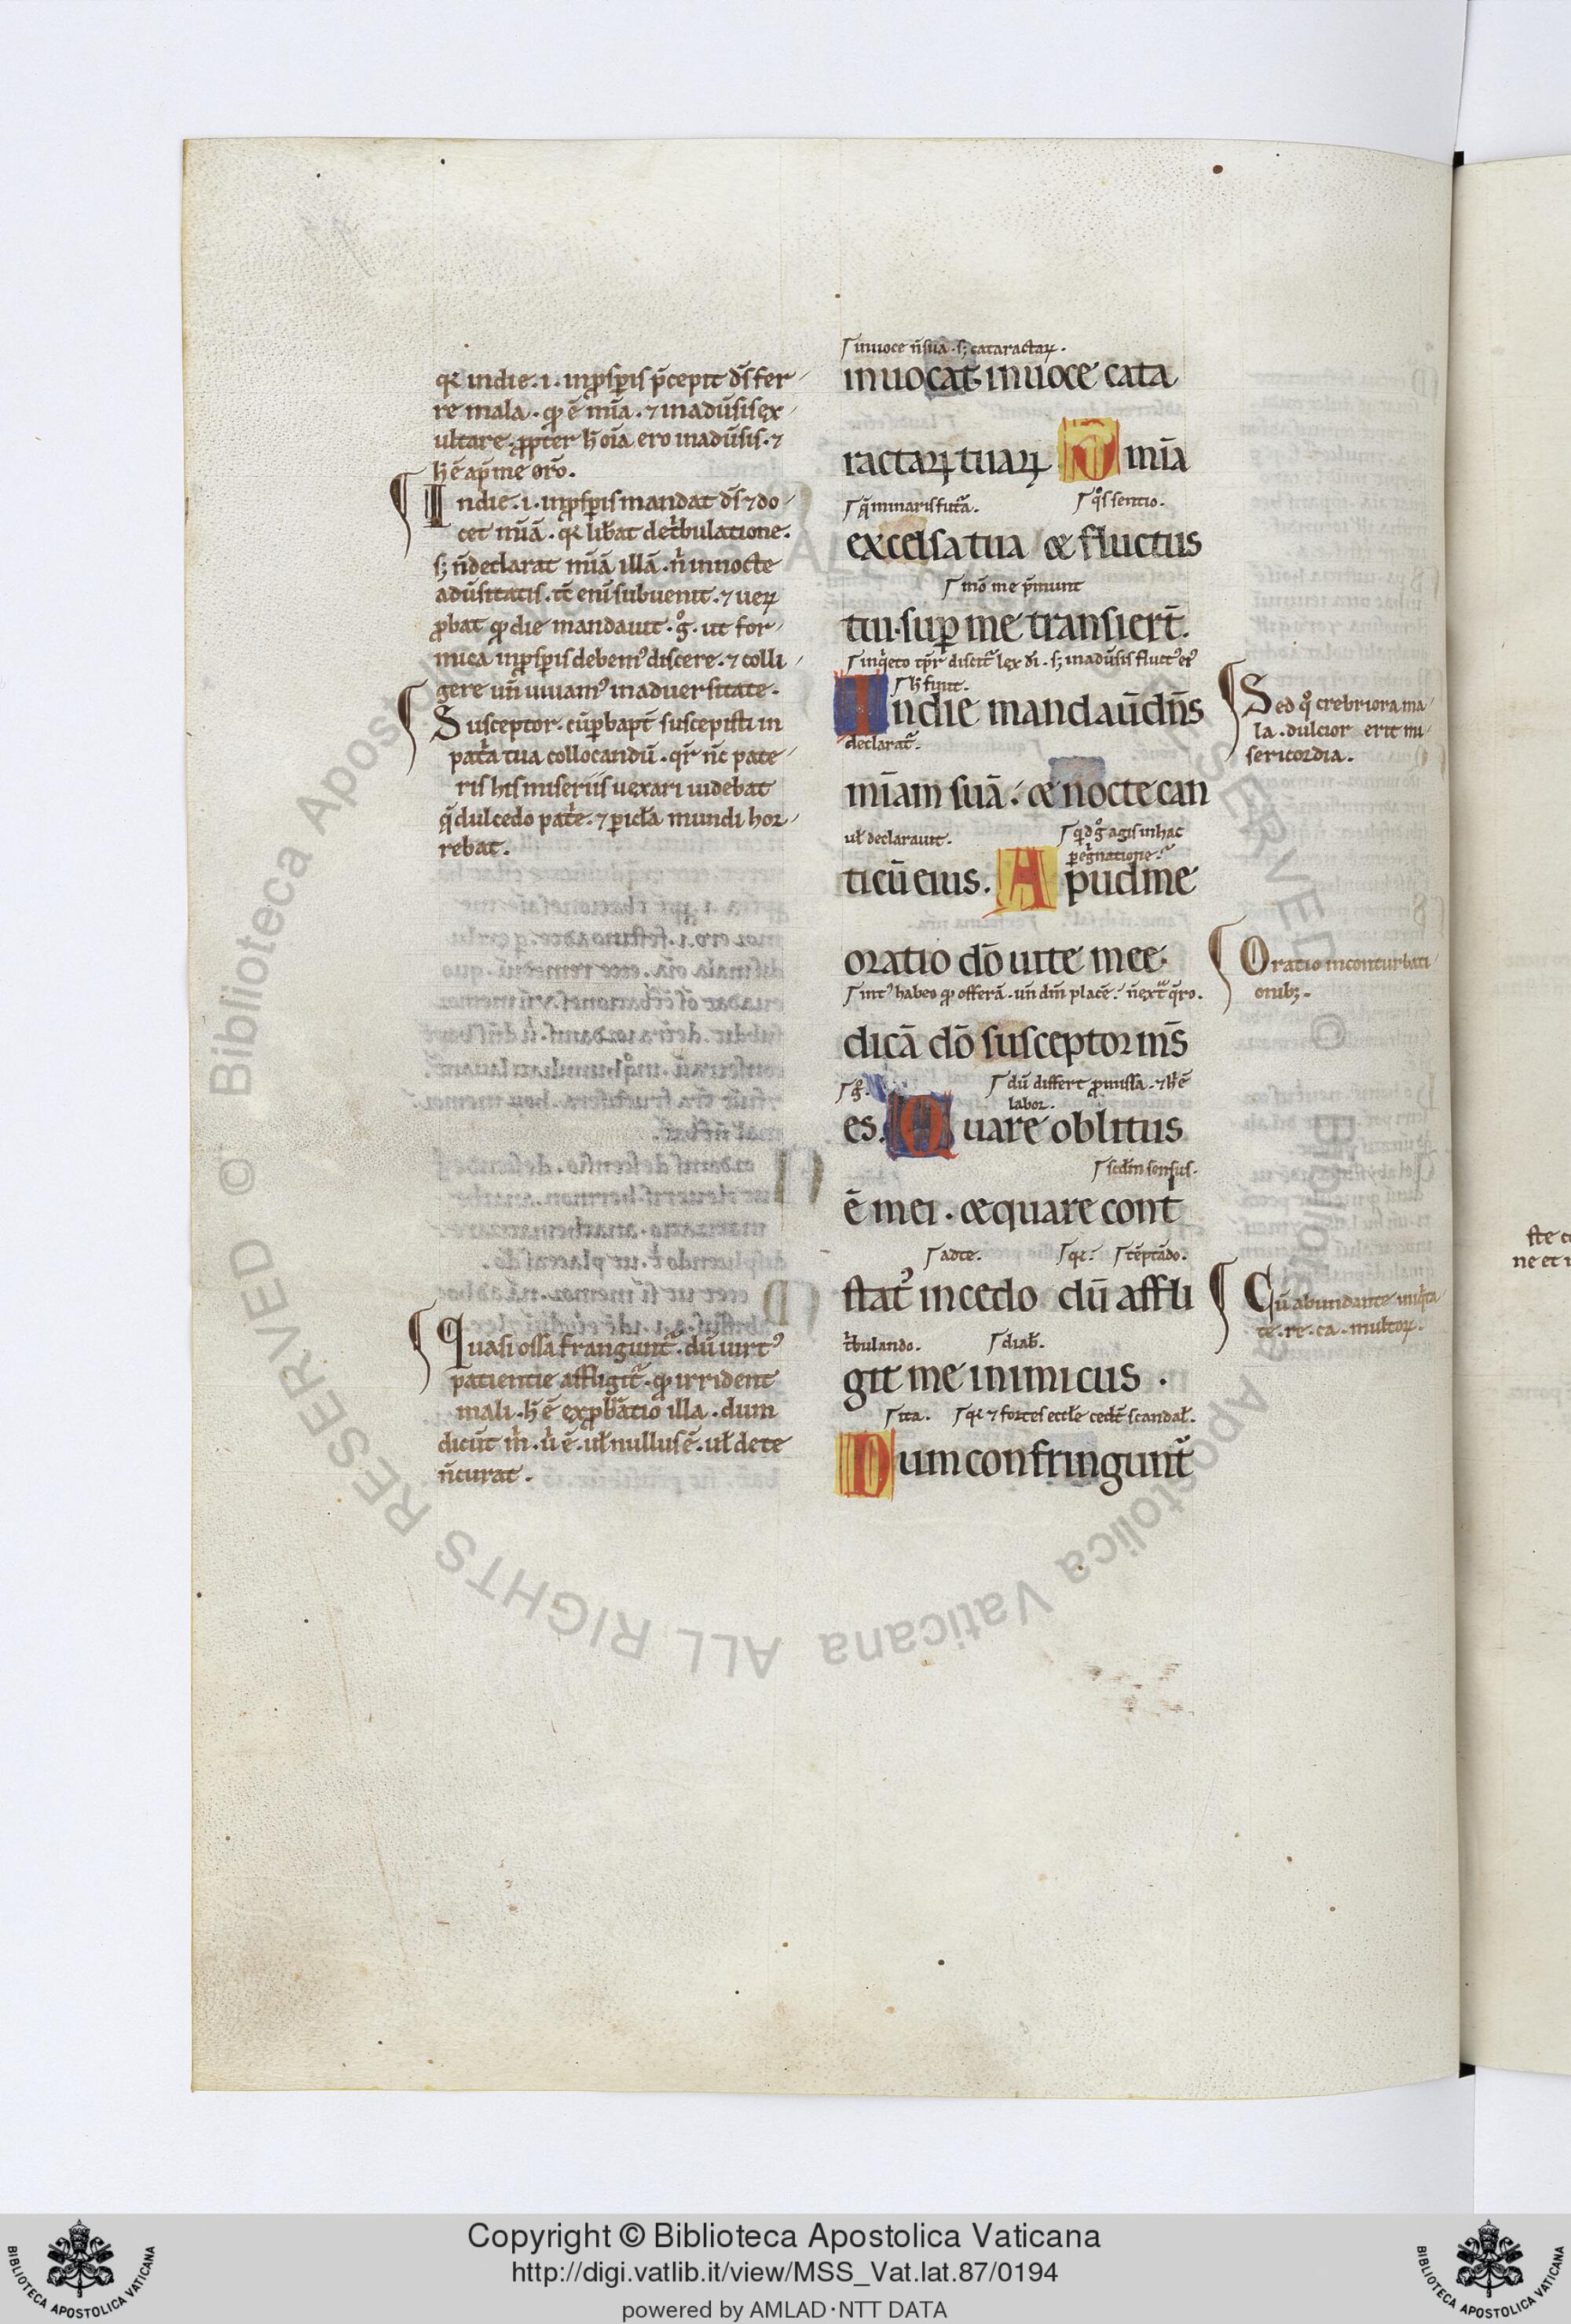 qr in die .i. in ꝓsꝑis p̄cepit d̄s fer
re mala . qꝫ ē mīa . ⁊ in adūsis ex
ultare . ꝓpter h̄ oīa ero in adūsis . ⁊
h̄ ē ap̄ me orō .
In die .i. in ꝓsꝑis mandat d̄s ⁊ do
cet mīā . qr lib̄at de tⁱbulatione .
sꝫ n̄ declarat mīā illā . nⁱ in nocte
adūsitatis . tc̄ enī subuenit . ⁊ ueꝝ
ꝓbat qꝫ die mandauit . gͦ . ut for
mica in ꝓsꝑis debemꝰ discere . ⁊ colli
gere un̄ uiuamꝰ in aduersitate .
Susceptor . cū ꝑ bapt̄ suscepisti in
patⁱa tua collocandū . qr̄ n̄c pate
ris his miseriis uexari uidebat
q̄ dulcedo patⁱe . ⁊ ꝑicl̄a mundi hor
rebat .
Quasi ossa frangunt᷑ . dū uirtꝰ
patientie affligit᷑ . qꝫ irrident
mali . h̄ ē exꝓbatio illa . dum
dicūt m̄ . uⁱ ē . ul̄ nullus ē . ul̄ de te
n̄ curat .
in uoce n̄ sua . sꝫ cataractaꝝ .
inuocat in uoce cata
ractaꝝ tuaꝝ Omīa
q̄ minaris fut᷑a . qͦs sentio .
excelsa tua & fluctus
mō me p̄munt
tui . suꝑ me transiert̄ .
in qⁱeto tp̄r discit᷑ lex dī . sꝫ in adūsis fluctꝰ etꝰ
h̄ fiunt .
In die mandaū dn̄s
declarat᷑ .
mīam suā : & nocte can
ul̄ declarauit . qd gͦ agis in hac
ꝑegⁱnatione .
ticū eius . Apud me
oratio dō uite mee
intꝰ habeo qꝫ offerā . un̄ dm̄ placē . n̄ ext᷑ q̄ro .
dicā dō susceptor m̄s
gͦ . dū differt ꝓmissa . ⁊ h̄ ē
labor .
es . Quare oblitus
scdm̄ sensus .
ē mei . & quare cont
ad te . qr . tēptādo .
statꝰ incedo dū affli
tⁱbulando . diab̄ .
git me inimicus .
ita . qr ⁊ fortes eccl̄e ced̄t scandal̄ .
Dum confringunt᷑
Sed qͦ crebriora ma
la . dulcior erit mi
sericordia .
Oratio in conturbati
onibꝫ .
Cū abundante iniqⁱta
te . re . ca . multoꝝ .
ne et
Copyright © Biblioteca Apostolica Vaticana
http://digi.vatlib.it/view/MSS_Vat.lat.87/0194
powered by AMLAD·NTT DATA
BIBLIOTECA APOSTOLICA VATICANA
BIBLIOTECA APOSTOLICA VATICANA
© Biblioteca Apostolica Vaticana ALL RIGHTS RESERVED
© Biblioteca Apostolica Vaticana ALL RIGHTS RESERVED